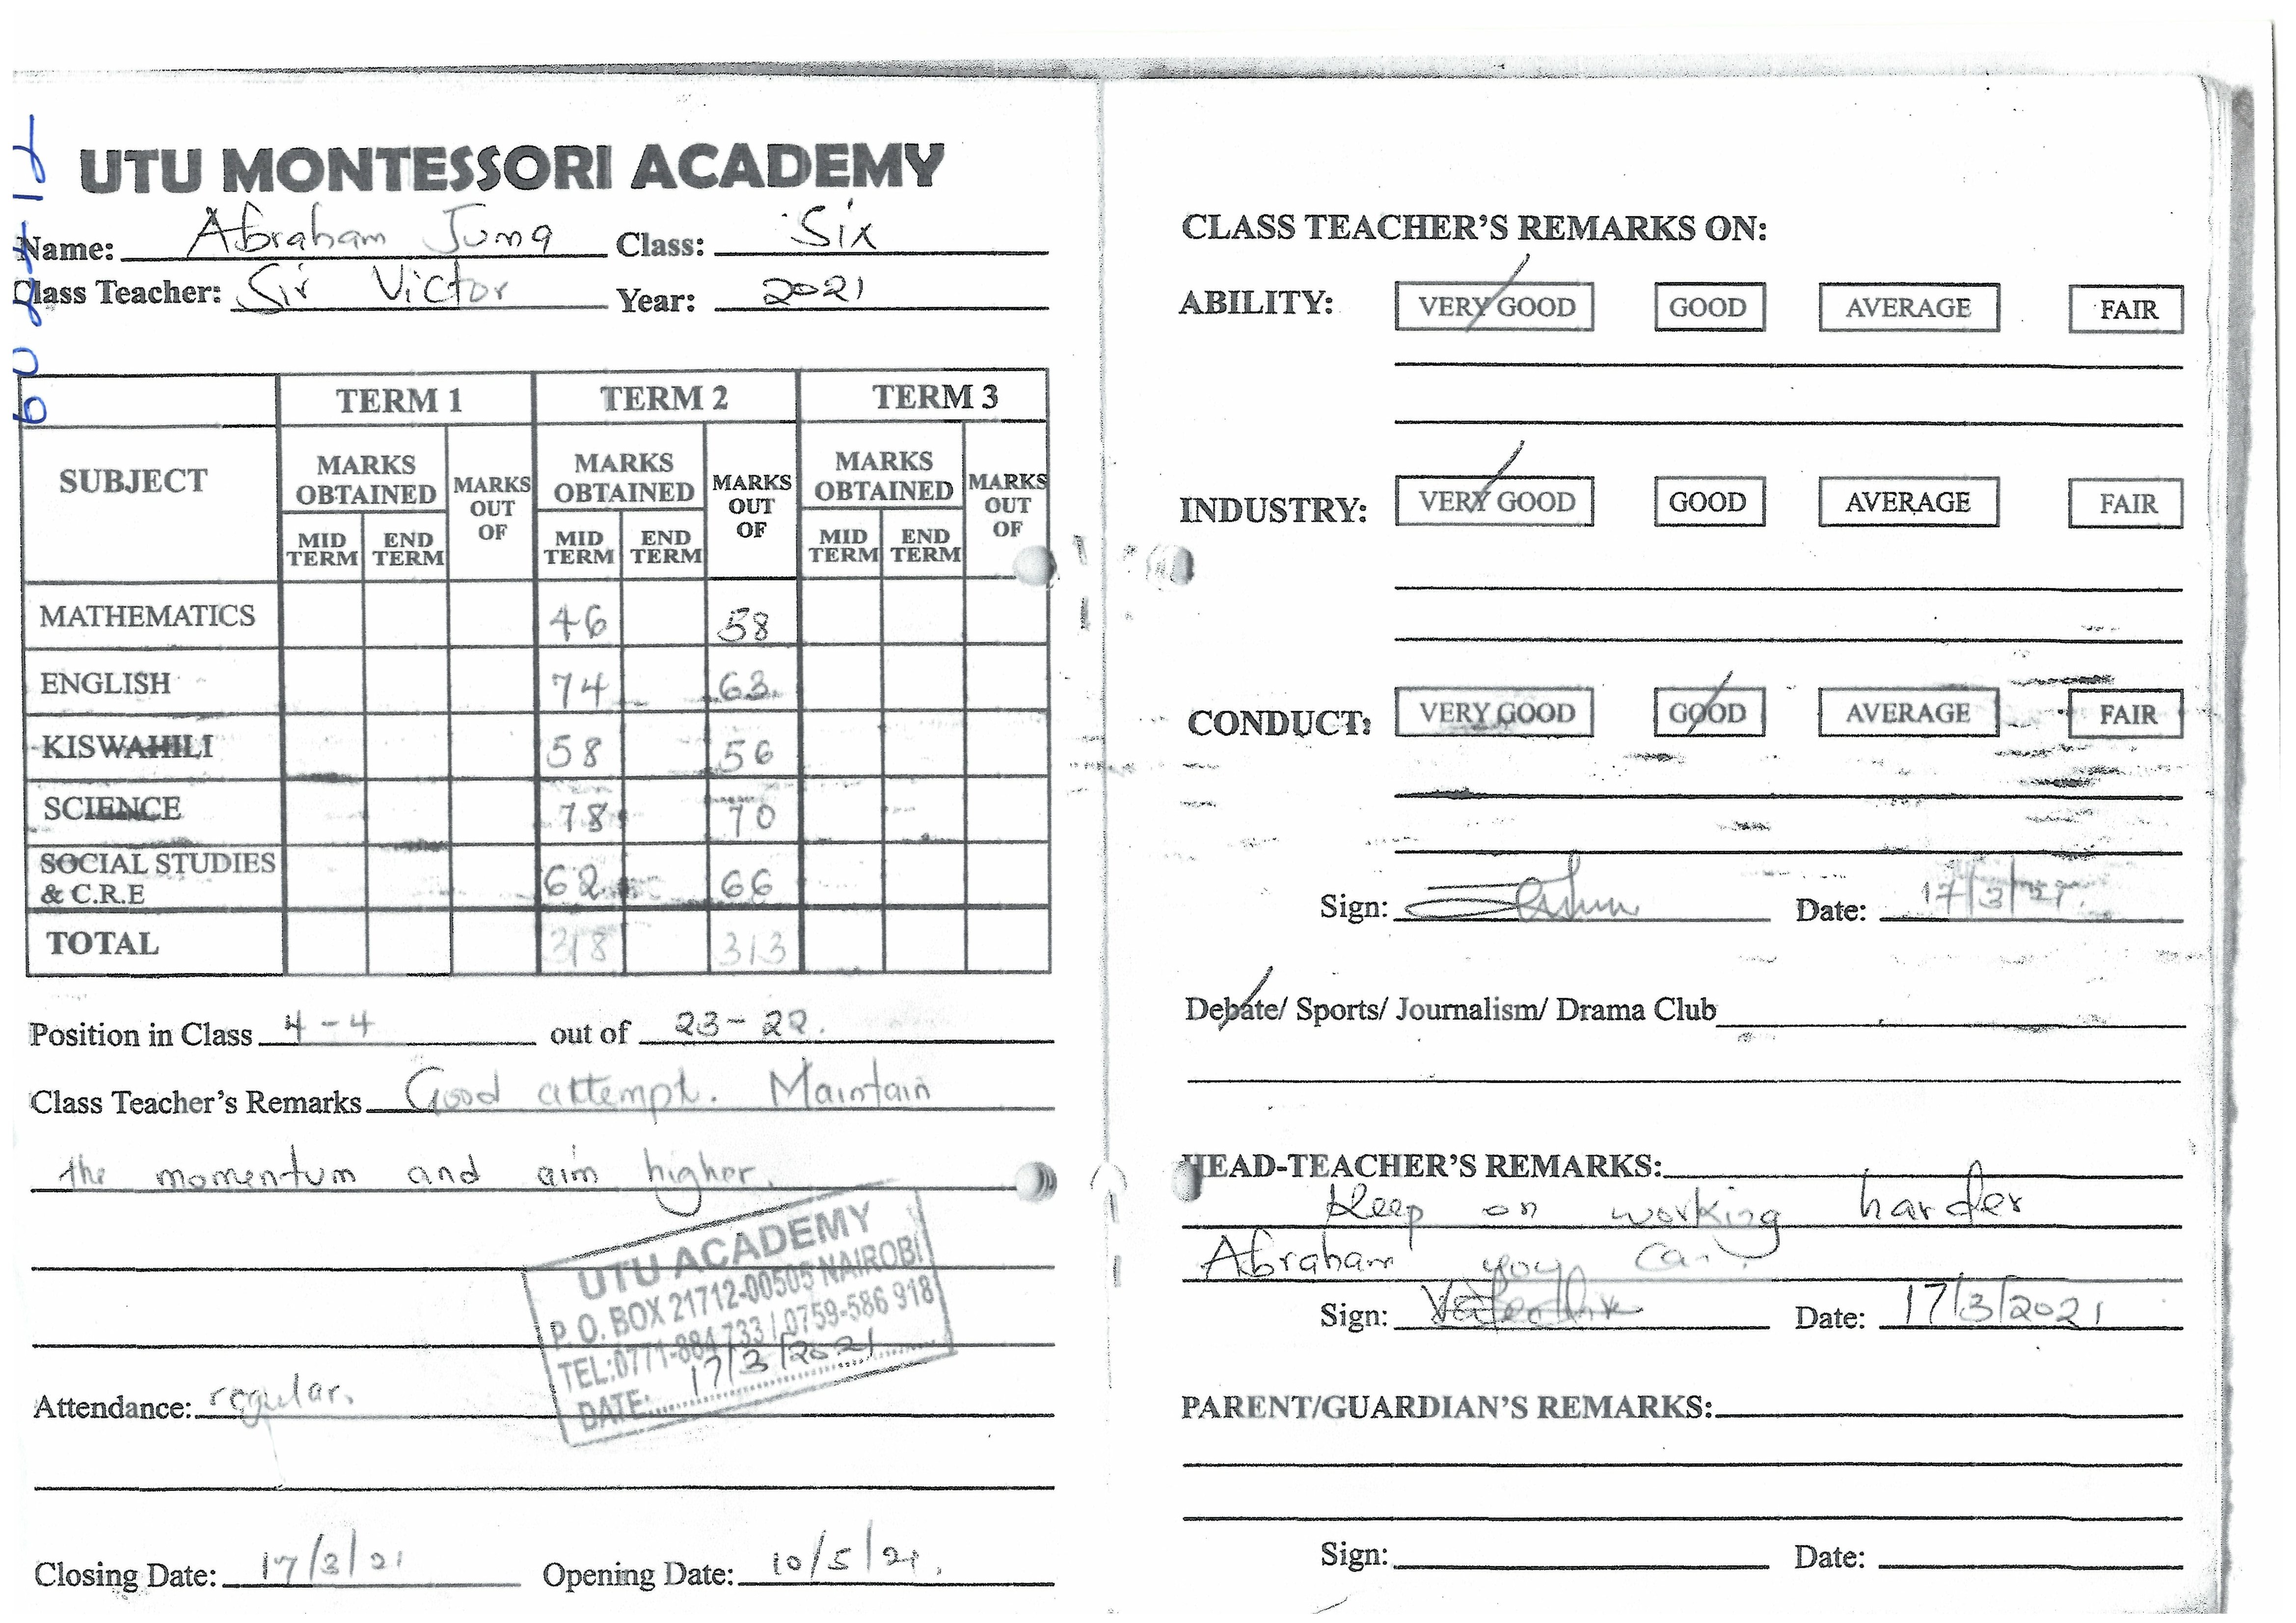 UTU MONTESSORI ACADEMY
Name: Abraham Juma Class: Six
Class Teacher: Sir Victor Year: 2021
TERM 1 TERM 2 TERM 3
SUBJECT MARKS OBTAINED MARKS OUT OF MARKS OBTAINED MARKS OUT OF MARKS OBTAINED MARKS OUT OF
MID TERM END TERM MID TERM END TERM MID TERM END TERM
MATHEMATICS 46 58
ENGLISH 74 63
KISWAHILI 58 56
SCIENCE 78 70
SOCIAL STUDIES & C.R.E 62 66
TOTAL 318 313
Position in Class 4-4 out of 23-22.
Class Teacher's Remarks Good attempt. Maintain
the momentum and aim higher.
UTU ACADEMY
P. O. BOX 21712-00505 NAIROBI
TEL:0771-884 733 / 0759-586 918
DATE: 17/3/2021
Attendance: regular.
Closing Date: 17/3/21 Opening Date: 10/5/21.
CLASS TEACHER'S REMARKS ON:
ABILITY: VERY GOOD GOOD AVERAGE FAIR
INDUSTRY: VERY GOOD GOOD AVERAGE FAIR
CONDUCT: VERY GOOD GOOD AVERAGE FAIR
Sign: Date: 17/3/21.
Debate/ Sports/ Journalism/ Drama Club
HEAD-TEACHER'S REMARKS:
Keep on working harder
Abraham you can.
Sign: Date: 17/3/2021
PARENT/GUARDIAN'S REMARKS:
Sign: Date: